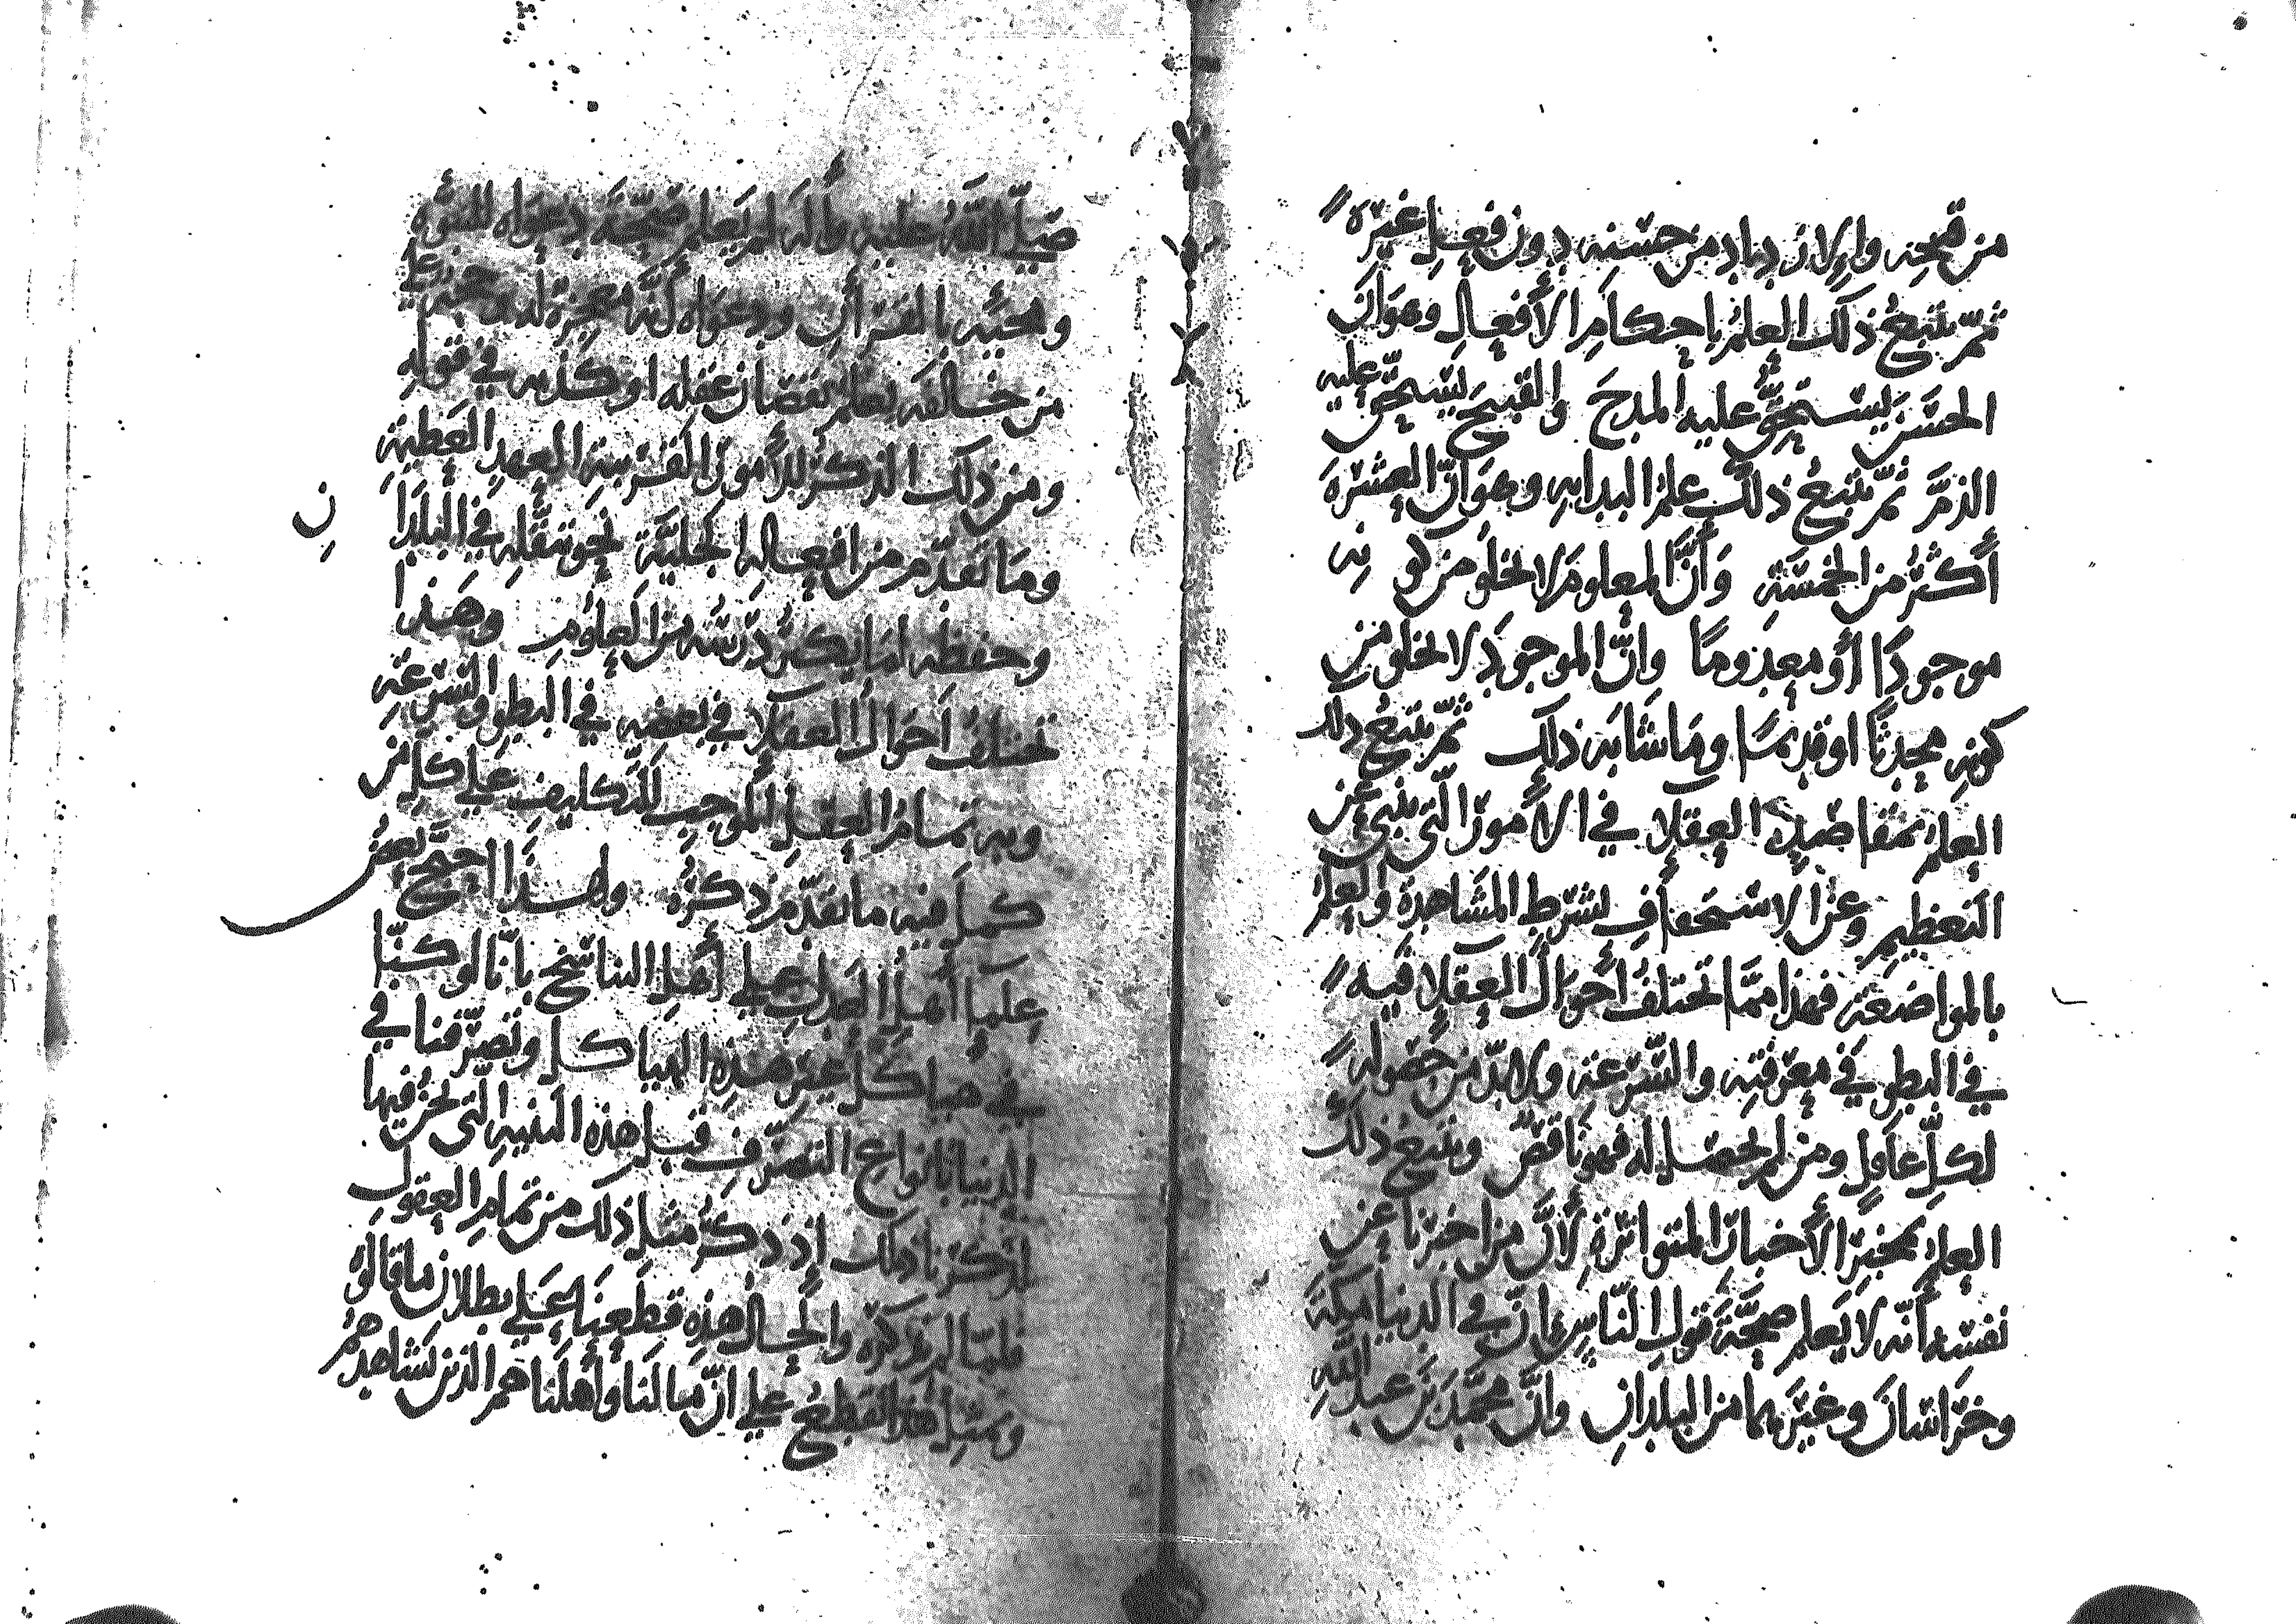 من قبحه وإلا زد باد من حسنه دون فعل غيره
ثم يتبع ذلك العلم بإحكام الأفعال وهو ان
الحسن يستحق عليه المدح والقبيح يستحق عليه
الذم ثم يتبع ذلك علم البدايه وهو ان العشرة
أكثر من الخمسة وأن المعلوم لا يخلو من كونه
موجودا أو معدوما وان الموجود لا يخلو من
كونه محدثا او قديما وما شابه ذلك ثم يتبع ذلك
العلم بمقاصد العقلا في الأمور التي تنبي عن
التعظيم وعن الاستخفاف بشرط المشاهدة والعلم
بالمواضعة فهذا مما تختلف أحوال العقلا فيه
في البطو في معرفته والسرعة ولا بد من حصوله
لكل عاقل ومن لم يحصل له فهو ناقص ويتبع ذلك
العلم بمخبر الأخبار المتواترة لأن من اخبرنا عن
نفسه أنه لا يعلم صحة قول الناس ان في الدنيا مكة
وخراسان وغيرهما من البلدان وان محمد بن عبد الله
صلى الله عليه وآله لم يعلم صحة دعواه للنبوه
ومجيه بالقرآن ودعواه أنه معجزة له حجة على
من خالفه يعلم نقصان عقله او كذبه في قوله
ومن ذلك الذكر للأمور القريبة العهد العظيمة
وما تقدم من افعاله الجلية نحو تنقله في البلدان
وحفظه لما يكثر درسه من العلوم وهذا
تختلف احوال العقلا في بعضه في البطو والسرعة
وبه تمام العقل الموجب للتكليف على كل من
كمل فيه ما تقدم ذكره ولهذا احتج بعض
علما أهل العدل على أهل التناسخ بانا لو كنا
في هياكل غير هذه الهياكل وتصرفنا في
الدنيا بأنواع التصرف قبل هذه البنيه التي نحن فيها
لذكرنا ذلك إذ ذكر مثل ذلك من تمام العقول
فلما لم نذكره والحال هذه قطعنا على بطلان ما قالوه
ومثل هذا القطع على ان ما لنا وأهلنا هم الذين نشاهدهم